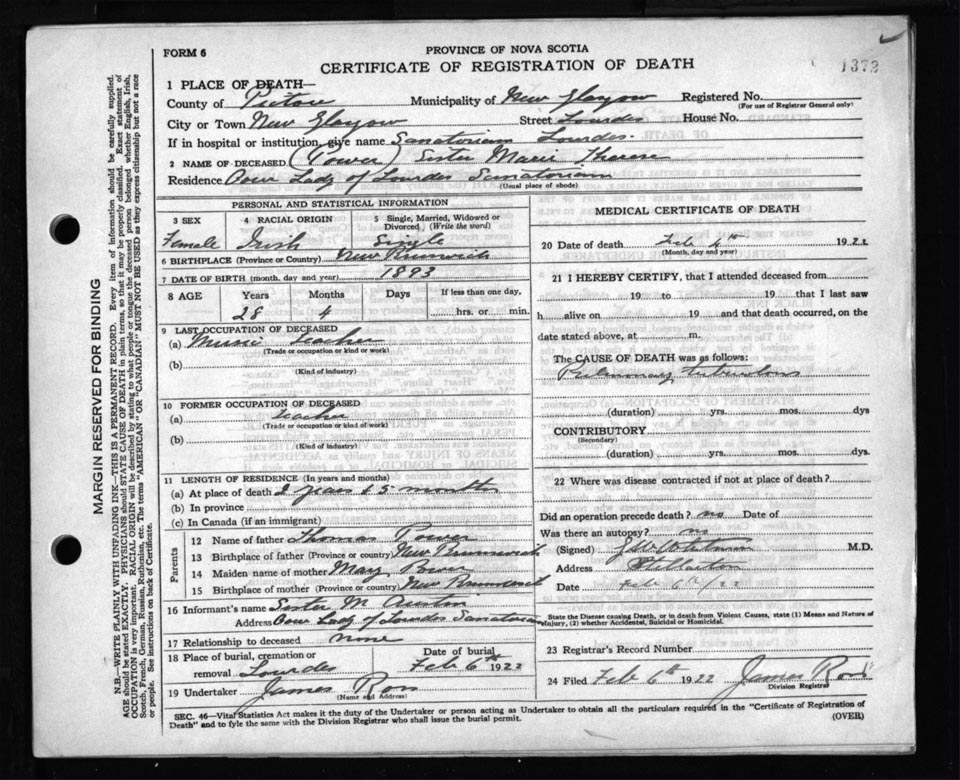 FORM 6
PROVINCE OF NOVA SCOTIA
CERTIFICATE OF REGISTRATION OF DEATH
1372
1 PLACE OF DEATH—
County of Pictou Municipality of New Glasgow Registered No.
(For use of Registrar General only)
City or Town New Glasgow Street Lourdes House No.
If in hospital or institution, give name Sanatorium Lourdes
2 NAME OF DECEASED (Power) Sister Marie Therese
Residence Our Lady of Lourdes Sanatorium
(Usual place of abode)
PERSONAL AND STATISTICAL INFORMATION
3 SEX 4 RACIAL ORIGIN 5 Single, Married, Widowed or Divorced (Write the word)
Female Irish Single
6 BIRTHPLACE (Province or Country) New Brunswick
7 DATE OF BIRTH (month, day and year) 1893
8 AGE Years Months Days If less than one day,
28 4 hrs. or min.
9 LAST OCCUPATION OF DECEASED
(a) Music Teacher
(Trade or occupation or kind or work)
(b)
(Kind of industry)
10 FORMER OCCUPATION OF DECEASED
(a) Teacher
(Trade or occupation or kind or work)
(b)
(Kind of industry)
11 LENGTH OF RESIDENCE (In years and months)
(a) At place of death 2 years & 5 months
(b) In province
(c) In Canada (if an immigrant)
Parents
12 Name of father Thomas Power
13 Birthplace of father (Province or country) New Brunswick
14 Maiden name of mother Mary
15 Birthplace of mother (Province or country) New Brunswick
16 Informant's name Sister M Austin
Address Our Lady of Lourdes Sanatorium
17 Relationship to deceased none
18 Place of burial, cremation or removal Lourdes Date of burial Feb 6th 1922
19 Undertaker James Ross
(Name and Address)
MEDICAL CERTIFICATE OF DEATH
20 Date of death Feb 4th 1922
(Month, day and year)
21 I HEREBY CERTIFY, that I attended deceased from
19 to 19 that I last saw
h alive on 19 and that death occurred, on the
date stated above, at m.
The CAUSE OF DEATH was as follows:
Pulmonary tuberculosis
(duration) yrs. mos. dys
CONTRIBUTORY
(Secondary)
(duration) yrs. mos. dys.
22 Where was disease contracted if not at place of death?
Did an operation precede death? no Date of
Was there an autopsy? no
(Signed) M.D.
Address Stellarton
Date Feb 6th/22
State the Disease causing Death, or in death from Violent Causes, state (1) Means and Nature of Injury, (2) whether Accidental, Suicidal or Homicidal.
23 Registrar's Record Number
24 Filed Feb 6th 1922 James Ross
Division Registrar
SEC. 46—Vital Statistics Act makes it the duty of the Undertaker or person acting as Undertaker to obtain all the particulars required in the "Certificate of Registration of
Death" and to fyle the same with the Division Registrar who shall issue the burial permit.
(OVER)
MARGIN RESERVED FOR BINDING
N.B.—WRITE PLAINLY WITH UNFADING INK—THIS IS A PERMANENT RECORD. Every item of information should be carefully supplied.
AGE should be stated EXACTLY. PHYSICIANS should STATE CAUSE OF DEATH in plain terms, so that it may be properly classified. Exact statement of
OCCUPATION is very important. RACIAL ORIGIN will be described by stating to what people or tongue the deceased person belonged whether English, Irish,
Scotch, French, German, Russian, Ruthenian, etc. The terms "AMERICAN" OR "CANADIAN" MUST NOT BE USED as they express citizenship but not a race
or people. See instructions on back of Certificate.